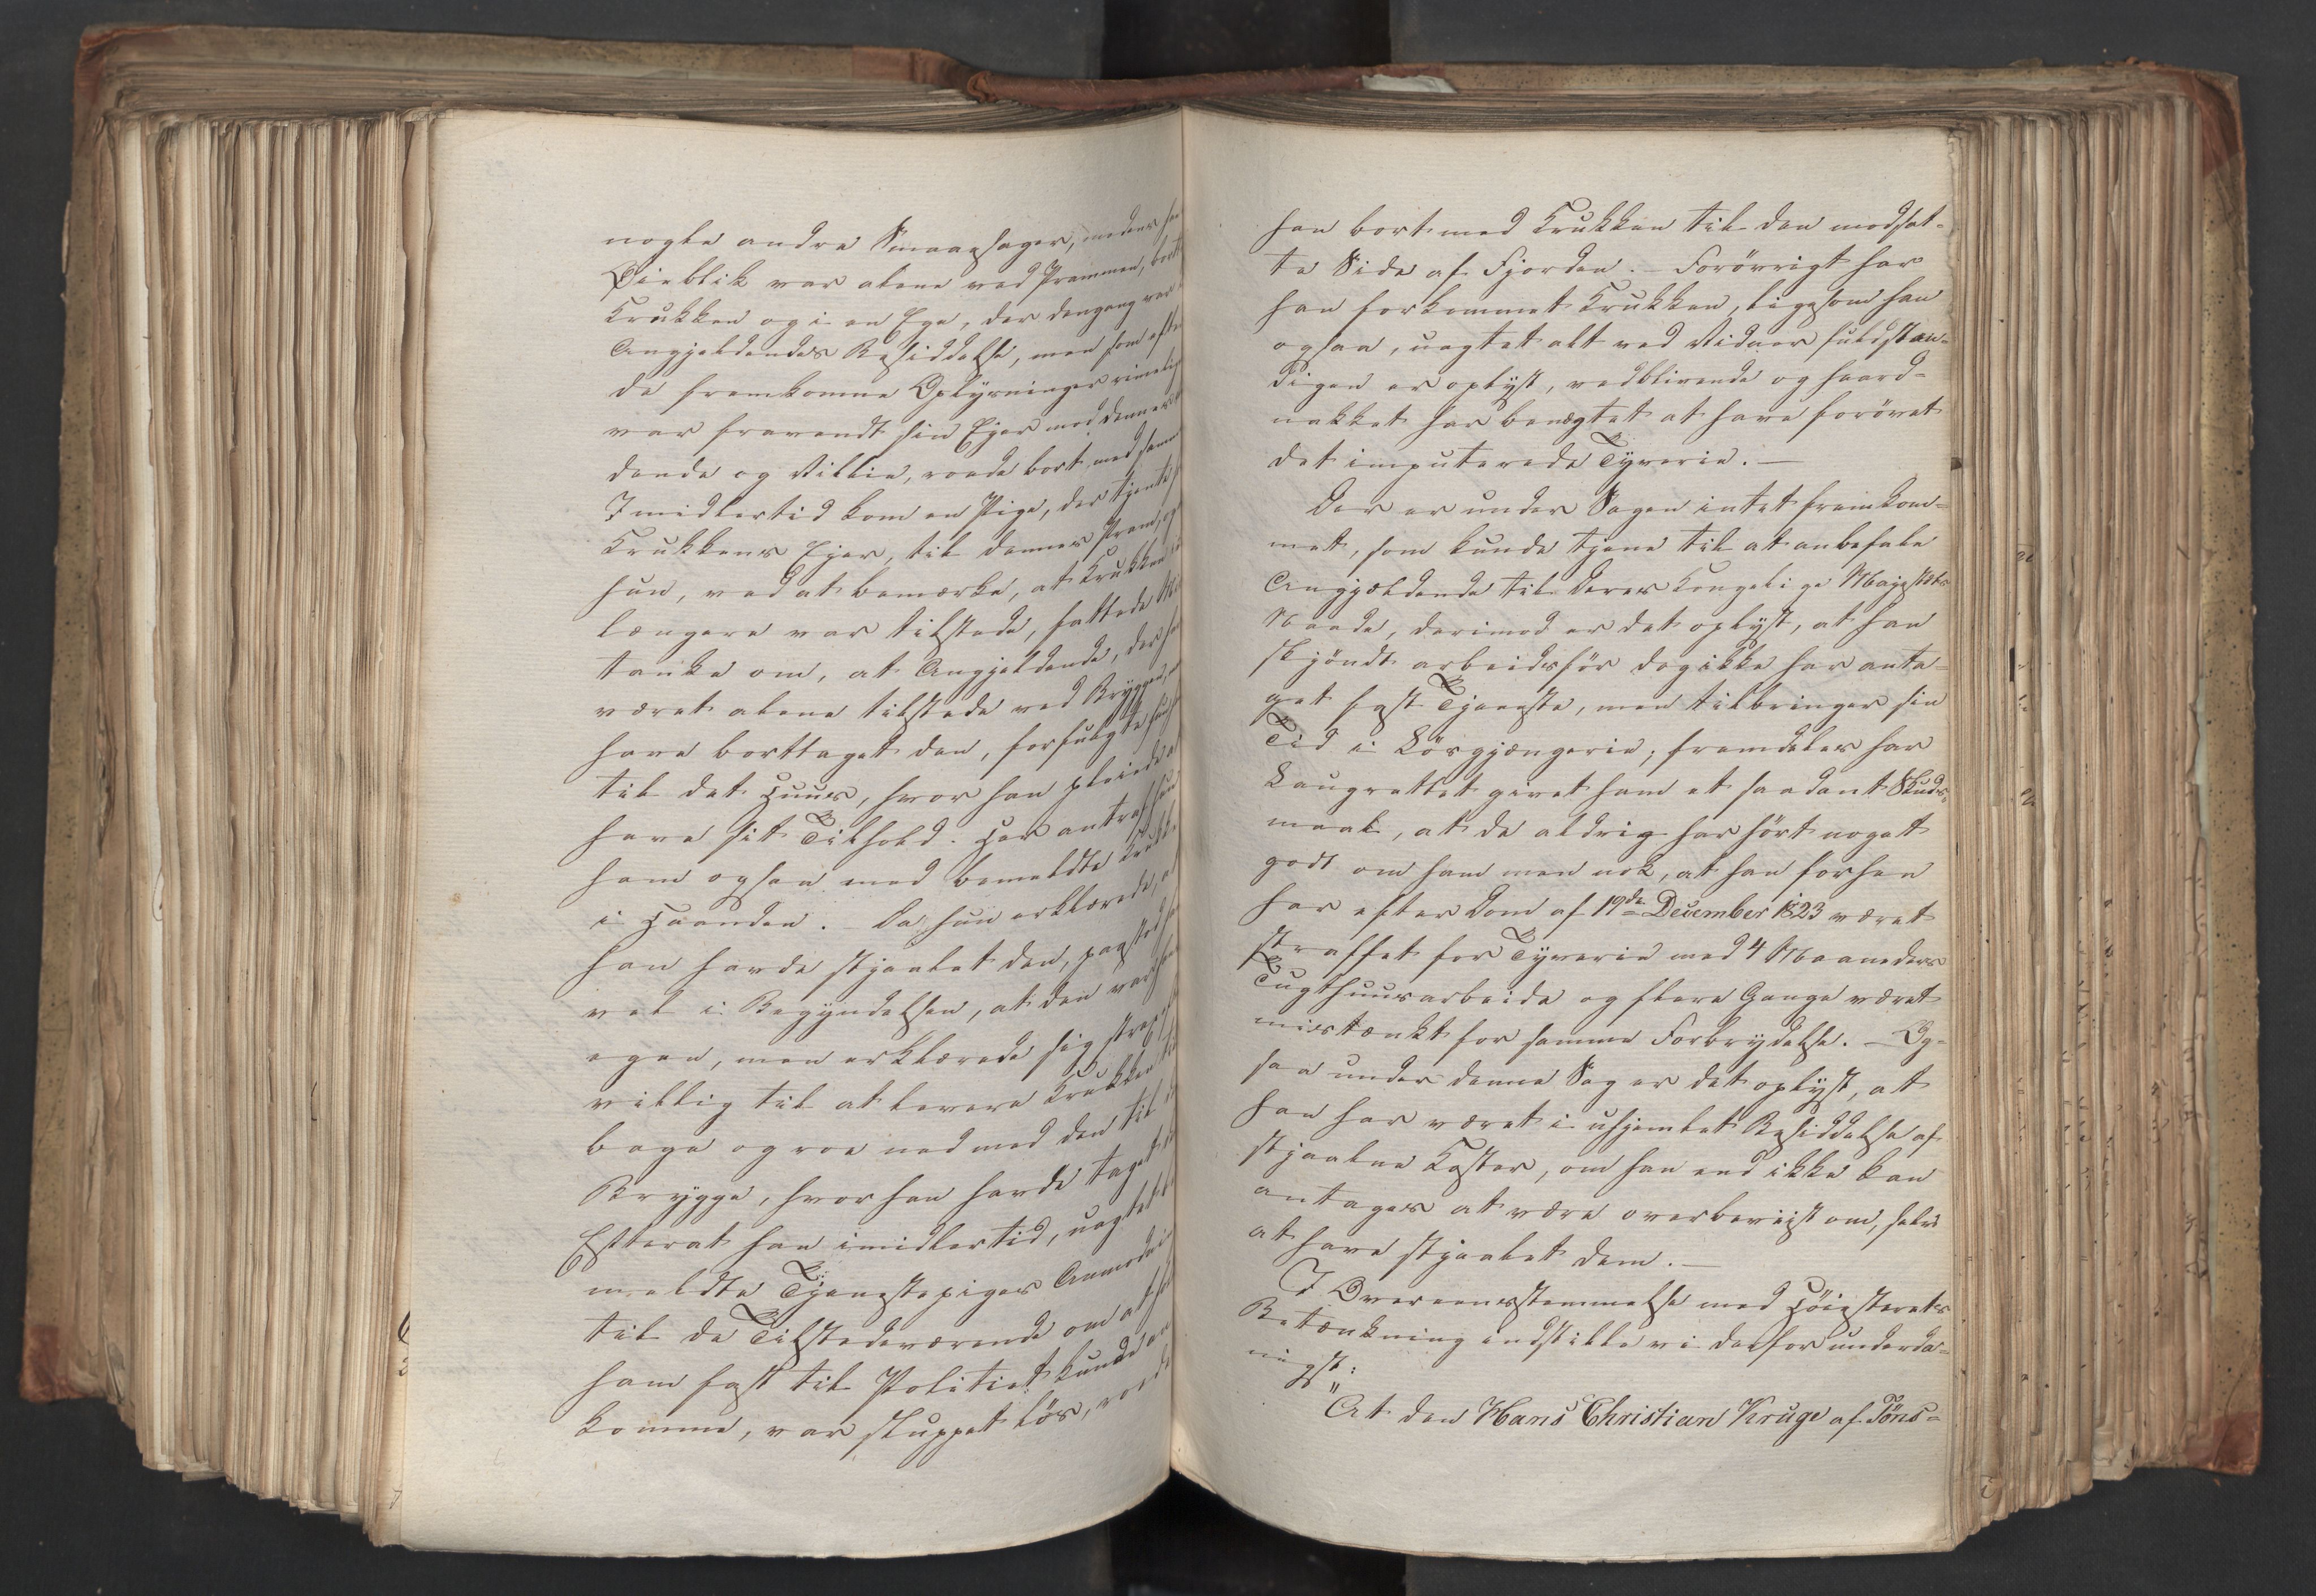 nogle andre Smaasager, medens han
Øieblik var alene ved Prammen, bort
Krukken og i en Ege, der dengang var
Angjeldendes Besiddelse, men som efter
de fremkomne Oplysninger rimelig
var fravendt sin Ejer mod dennes
dende og Villie, roede bort med samme
Imidlertid kom en Pige, der tjente
Krukkens Ejer, til dennes Pram, og
hun, ved at bemærke, at Krukken
længere var tilstede, fattede Mis
tanke om, at Angjeldende, der havde
været alene tilstede ved Bryggen,
have borttaget den, forfulgte hun
til det Huus, hvor han pleiede at
have sit Tilhold. Her antraf hun
ham ogsaa med bemeldte Krukke
i Haanden. – Da hun erklærede, at
han havde stjaalet den, paastod
vel i Begyndelsen, at den var hans
egen, men erklærede sig strax
villig til at levere Krukken til
bage og roe ned med den til
Brygge, hvor han havde taget
Efterat han imidlertid, uagtet be
meldte Tjenestepiges Anmodning
til de Tilstedeværende om at holde
ham fast til Politiet kunde an
komme, var sluppet løs, roede
han bort med Krukken til den modsat-
te Side af Fjorden. – Forøvrigt har
han forkommet Krukken, ligesom han
ogsaa, uagtet alt ved Vidner fuldstæn-
digen er oplyst, vedblivende og haard-
nakket har benægtet at have forøvet
det imputerede Tyverie. –
Der er under Sagen intet fremkom-
met, som kunde tjene til at anbefale
Angjældende til Deres Kongelige Majestæts
Naade, derimod er det oplyst, at han
skjøndt arbeidsfør dog ikke har anta-
get fast Tjeneste, men tilbringer sin
Tid i Løsgjængerie; fremdeles har
Laugrettet givet ham et saadant Skuds-
maal, at de aldrig har hørt noget
godt om ham men nok, at han forhen
har efter Dom af 19de December 1823 været
straffet for Tyverie med 4 Maaneders
Tugthuusarbeide og flere Gange været
mistænkt for samme Forbrydelse. – Og-
saa under denne Sag er det oplyst, at
han har været i uhjemlet Besiddelse af
stjaalne Koster, om han end ikke kan
antages at være overbeviist om, selv
at have stjaalet dem. –
I Overeensstemmelse med Høiesterets
Betænkning indstille vi derfor underda-
nigst:
"At den Hans Christian Kruge af Töns-